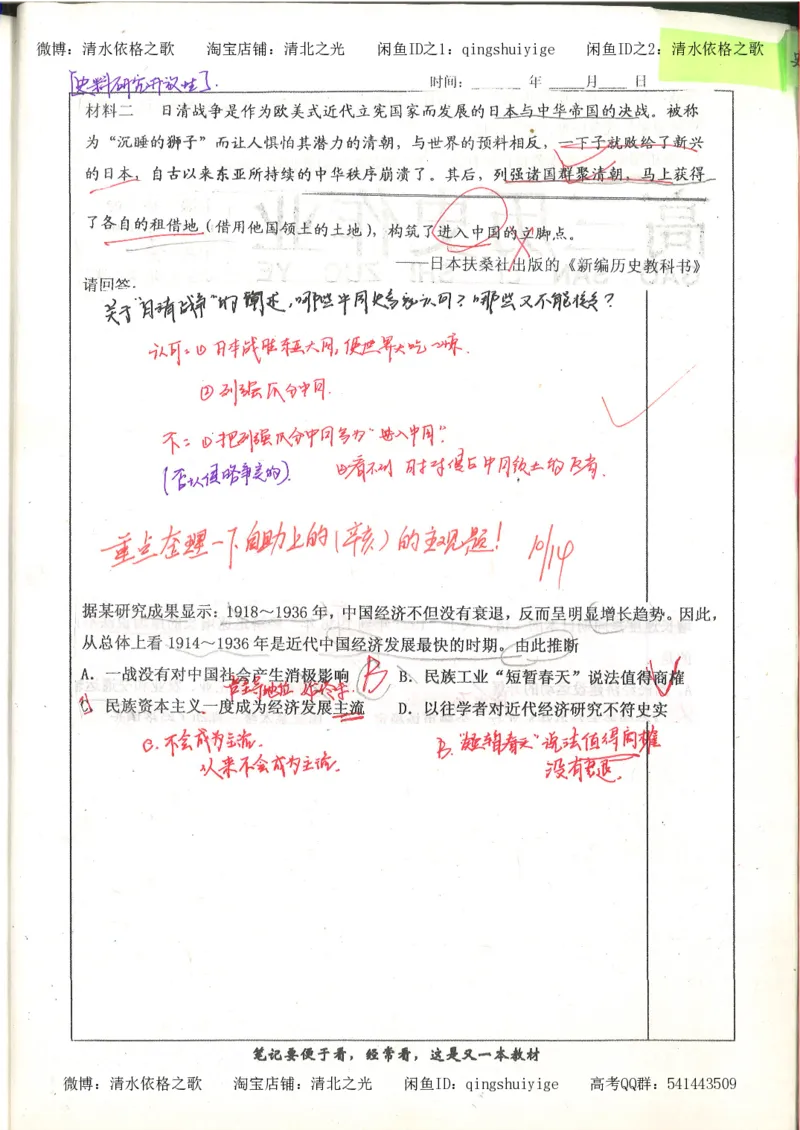 微博：清水依格之歌 淘宝店铺：清北之光 闲鱼ID之1：qingshuiyige 闲鱼ID之2：清水依格之歌
[史料研究开放性].
时间：____年____月____日
材料二 日清战争是作为欧美式近代立宪国家而发展的日本与中华帝国的决战。被称
为“沉睡的狮子”而让人惧怕其潜力的清朝，与世界的预料相反，一下子就败给了新兴
的日本，自古以来东亚所持续的中华秩序崩溃了。其后，列强诸国群聚清朝，马上获得
了各自的租借地（借用他国领土的土地），构筑了进入中国的立脚点。
——日本扶桑社出版的《新编历史教科书》
请回答：
关于“日清战争”的阐述，哪些中国史家认可？哪些又不能接受？
认可：① 日本战胜东亚大国，使世界大吃一惊.
② 列强瓜分中国.
不：① 把列强瓜分中国写为“进入中国”.
(否认侵略事实的).
② 看不到 日本对侵占中国领土的反省.
重点整理一下自助上的(辛亥)的主观题! 10/14
据某研究成果显示：1918～1936年，中国经济不但没有衰退，反而呈明显增长趋势。因此，
从总体上看1914～1936年是近代中国经济发展最快的时期。由此推断
A．一战没有对中国社会产生消极影响 B B．民族工业“短暂春天”说法值得商榷
占主导地位
C．民族资本主义一度成为经济发展主流 D．以往学者对近代经济研究不符史实
C. 不会成为主流.
从来不会成为主流.
B. “短暂春天”说法值得商榷
没有衰退.
笔记要便于看，经常看，这是又一本教材
微博：清水依格之歌 淘宝店铺：清北之光 闲鱼ID：qingshuiyige 高考QQ群：541443509